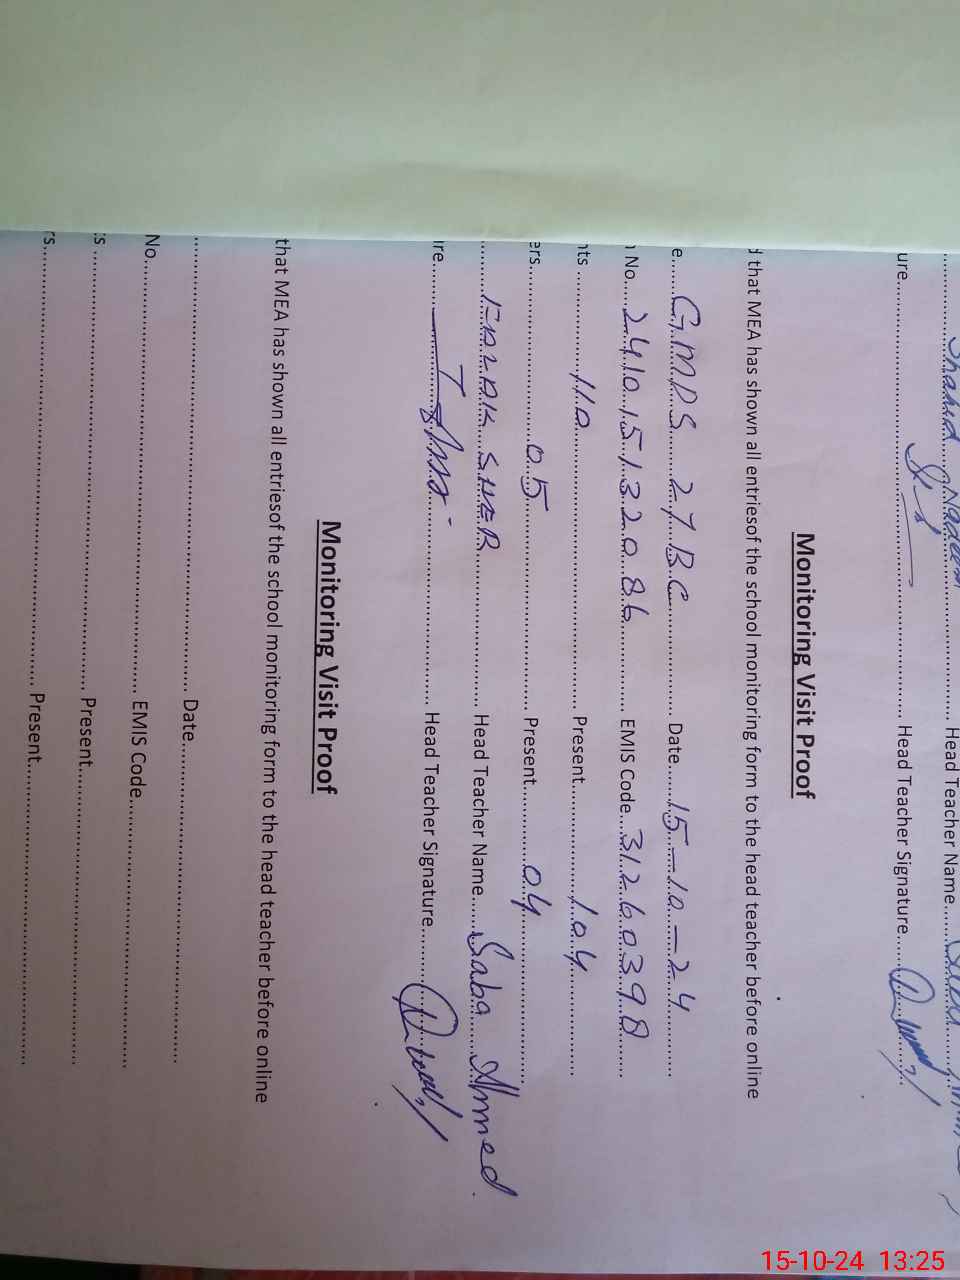 Shahid Nadeem Head Teacher Name
ure Head Teacher Signature
Monitoring Visit Proof
that MEA has shown all entriesof the school monitoring form to the head teacher before online
e G.M.P.S 27 BC Date 15-10-24
No. 241015132086 EMIS Code 31260398
nts 110 Present 104
ers 05 Present 04
SHER Head Teacher Name Saba Ahmed
ure Head Teacher Signature
Monitoring Visit Proof
that MEA has shown all entriesof the school monitoring form to the head teacher before online
Date
No EMIS Code
s Present
rs Present
15-10-24 13:25